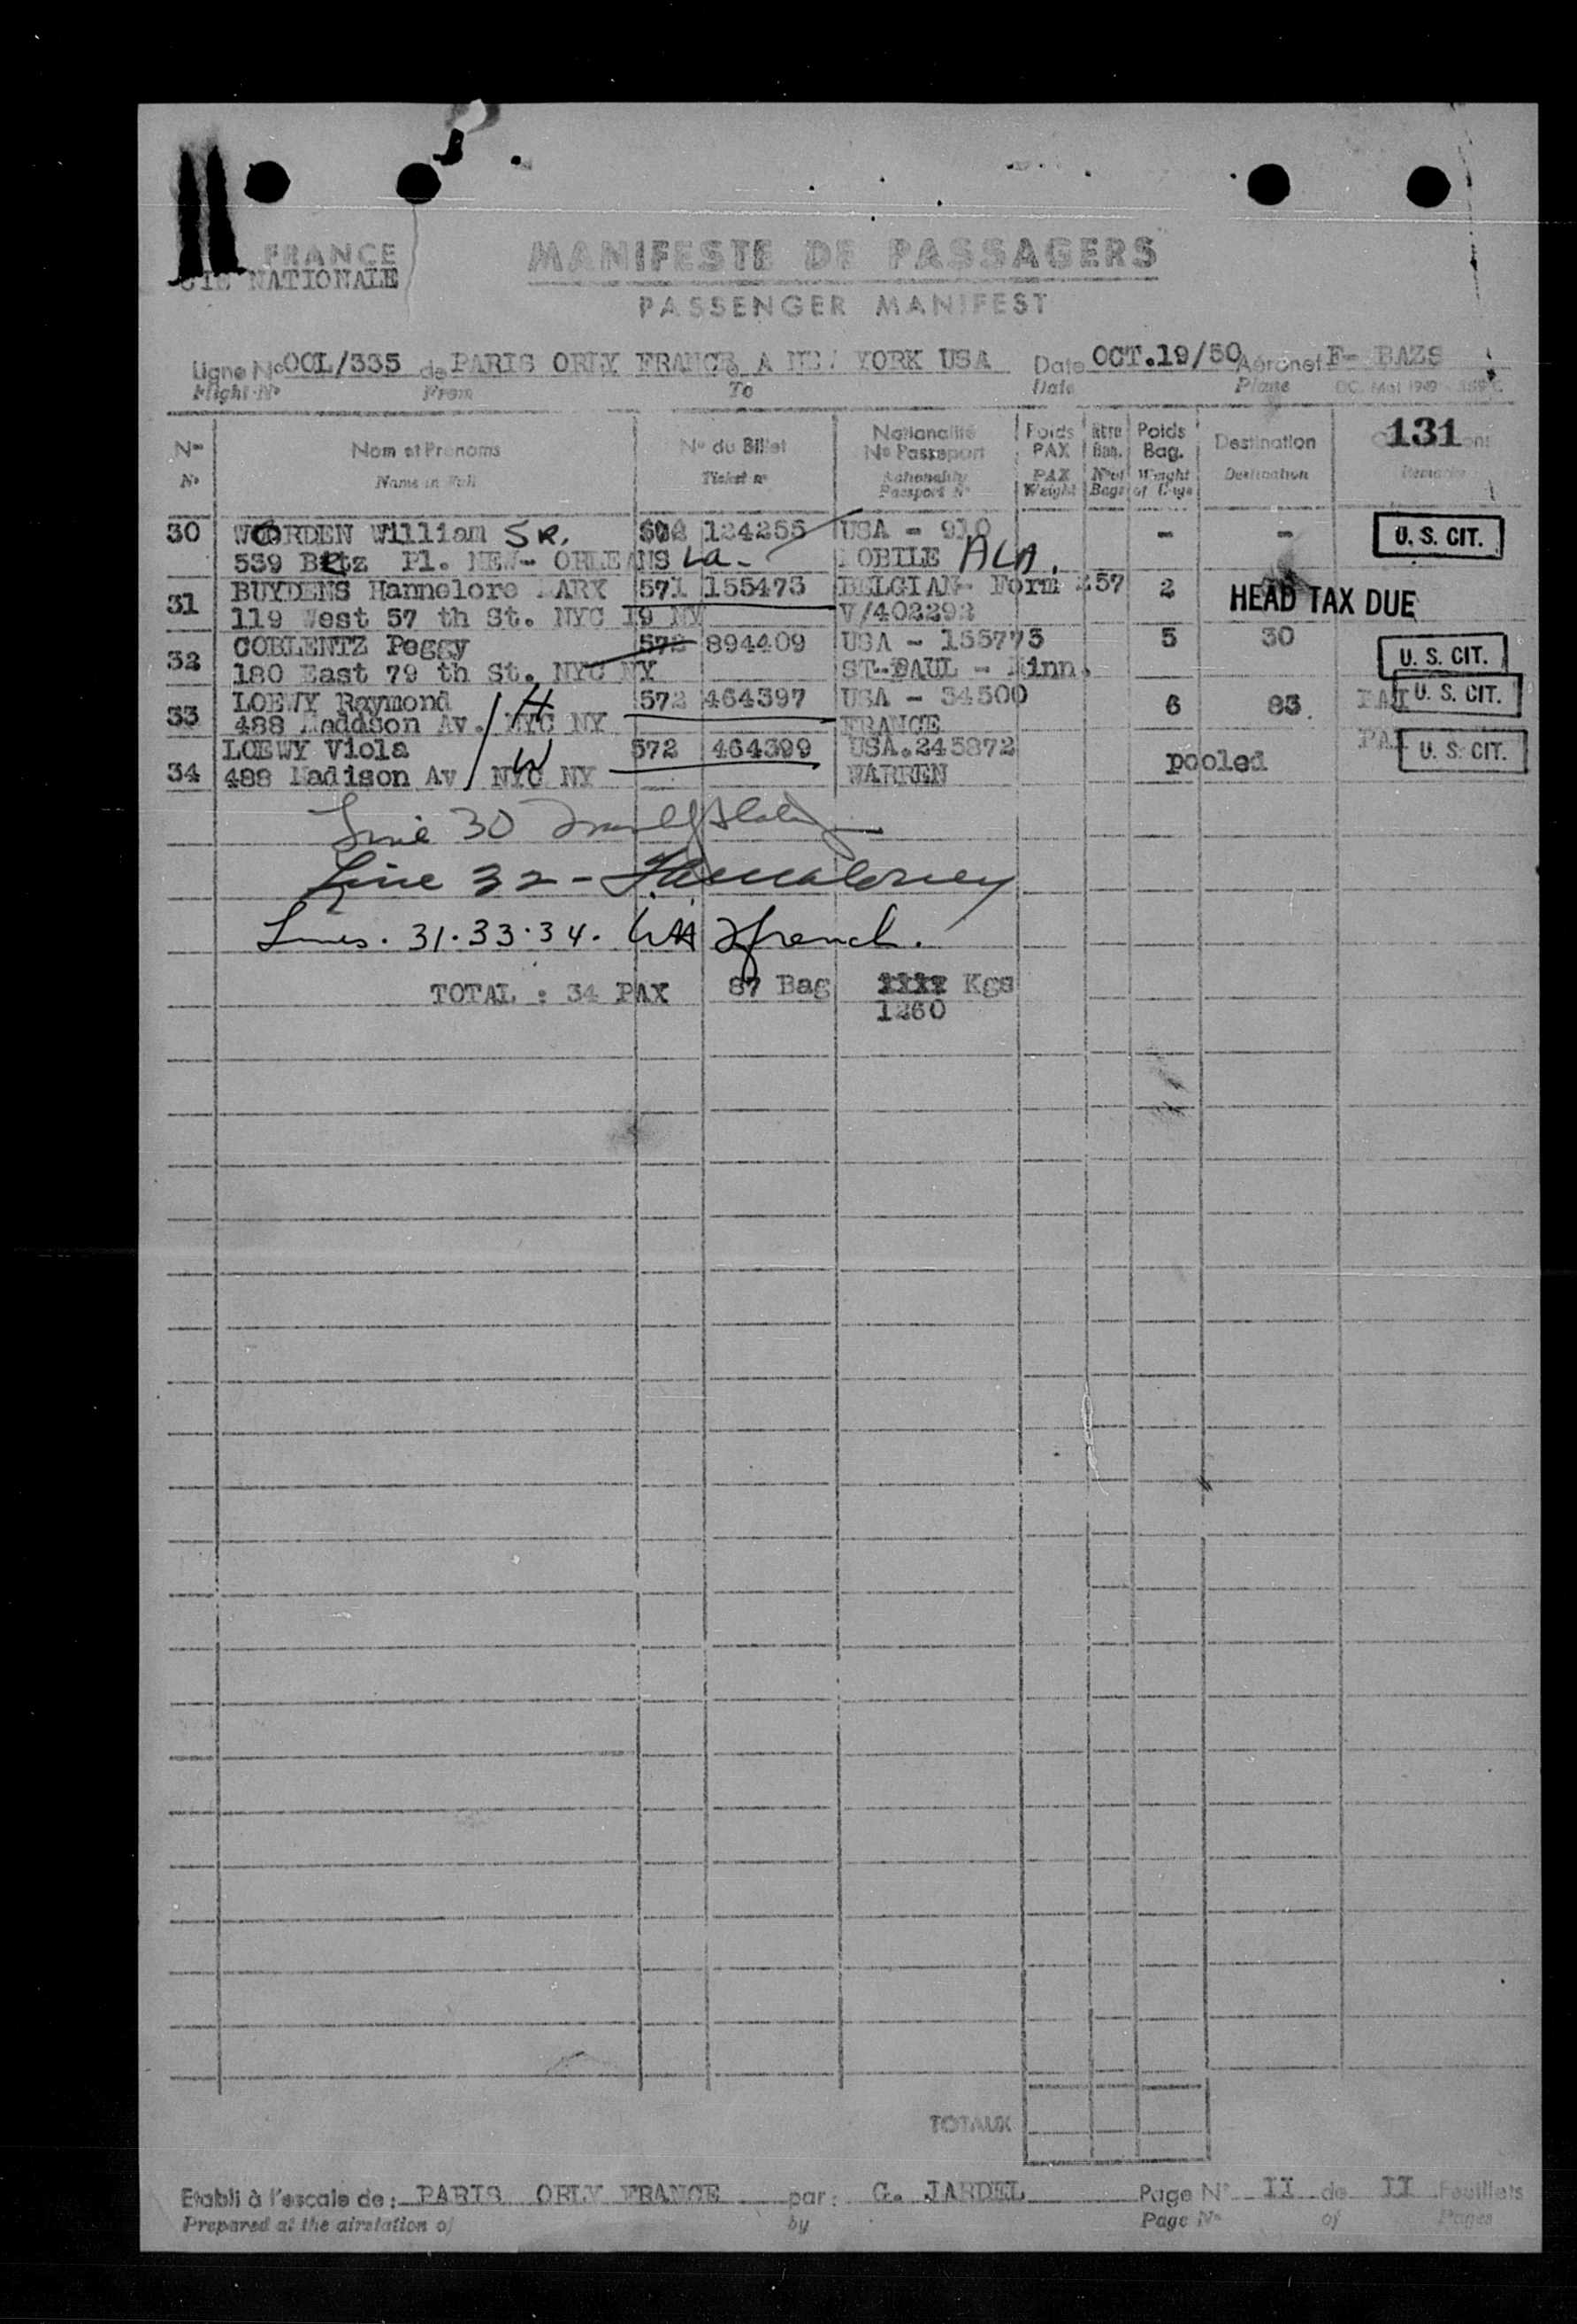 FRANCE
CIE NATIONALE
MANIFESTE DE PASSAGERS
PASSENGER MANIFEST
Ligne No OOL/335 de PARIS ORLY FRANCE A NEW YORK USA Date OCT.19/50 Aéronef F- BAZS
Flight No From To Date Plane
Nos Nom et Prénoms No du Billet Nationalité No Passeport Poids PAX Poids Bag. Destination 131
No Name in Full Ticket no Nationality Passport No PAX Weight No of Bags Weight of Bags Destination Remarks
30 WORDEN William SR. 124255 USA - 910 - - U. S. CIT.
539 Betz Pl. NEW- ORLEANS La- MOBILE ALA.
31 BUYDENS Hannelore MARY 571 155473 BELGIAN- Form 257 2 HEAD TAX DUE
119 West 57 th St. NYC 19 NY V/402292
32 COBLENTZ Peggy 572 894409 USA - 155773 5 30 U. S. CIT.
180 East 79 th St. NYC NY ST-PAUL - Minn.
33 LOEWY Raymond H 572 464397 USA - 34500 6 83 U. S. CIT.
488 Maddison Av. NYC NY FRANCE
34 LOEWY Viola W 572 464399 USA.245872 pooled U. S. CIT.
488 Madison Av NYC NY WARREN
Line 30
Line 32 -
Lines. 31.33.34.
TOTAL : 34 PAX 87 Bag Kgs
1260
TOTAUX
Etabli à l'escale de: PARIS ORLY FRANCE par: G. JARDEL Page No II de II Feuillets
Prepared at the airstation of by Page No of Pages